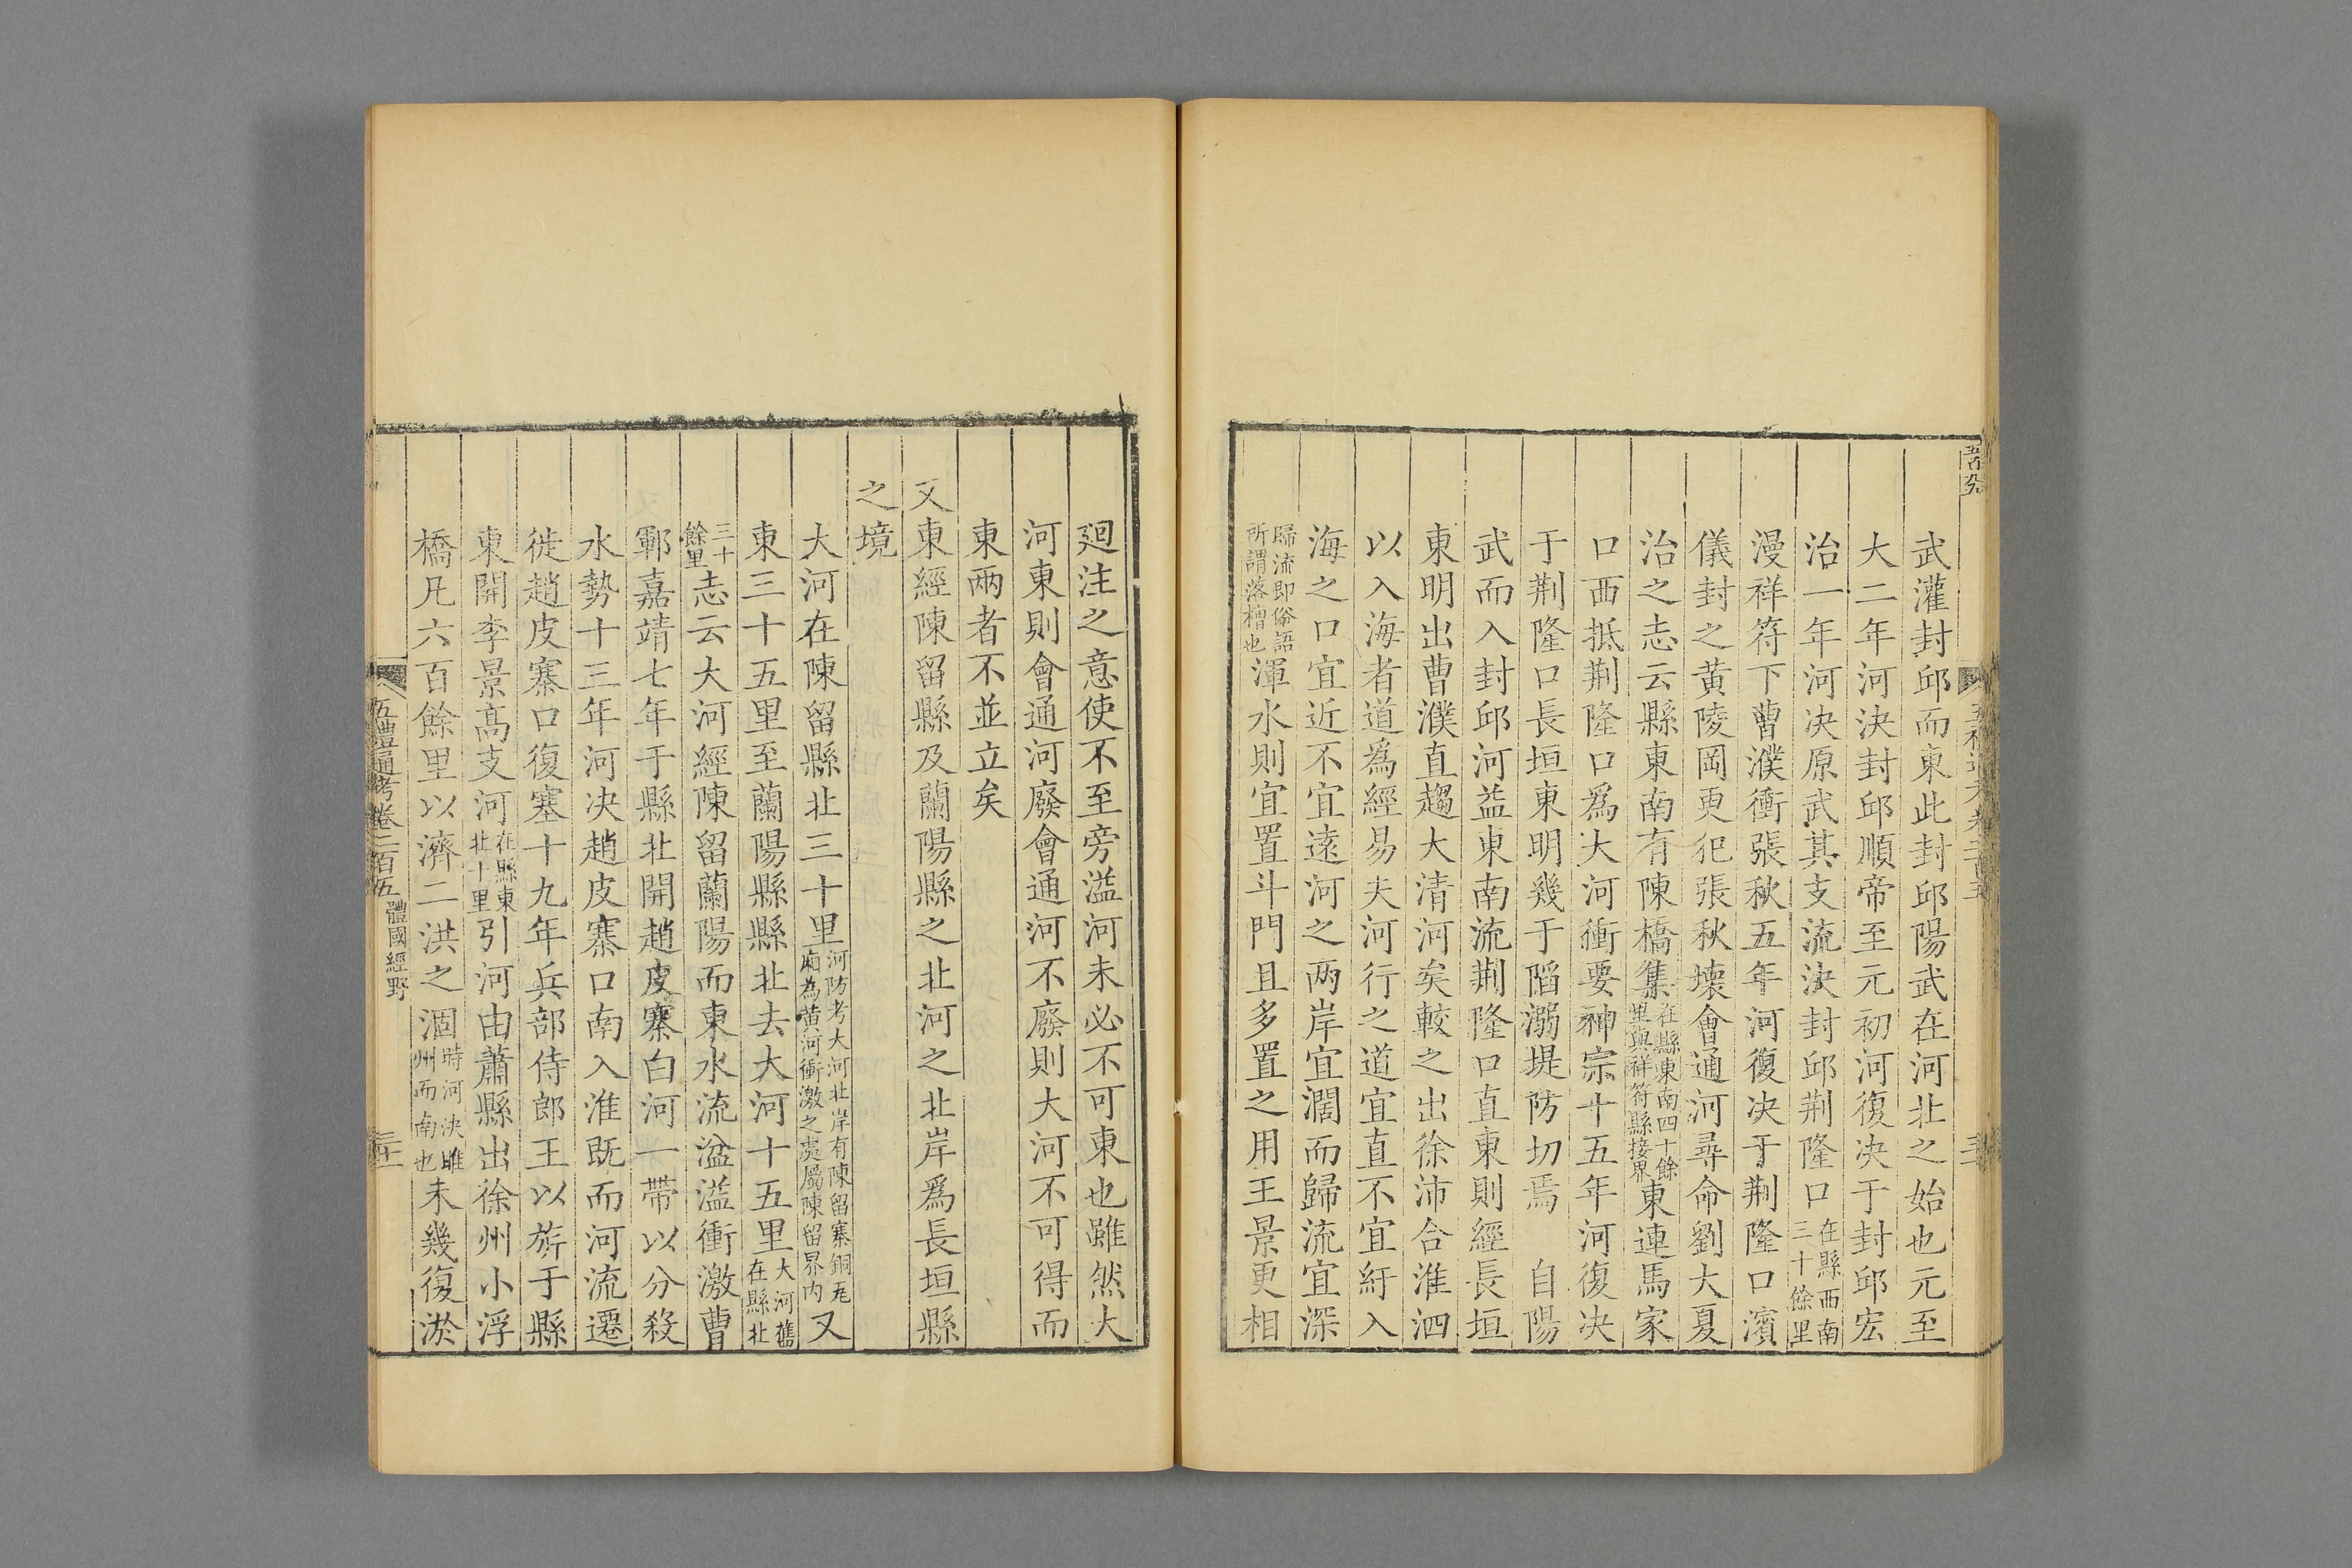 武灌封邱而東此封邱陽武在河北之始也元至
大二年河決封邱順帝至元初河復決于封邱宏
治一年河决原武其支流決封邱荆隆口在縣西南三十餘里
漫祥符下曹濮衝張秋五年河復决于荆隆口濱
儀封之黄陵岡更犯張秋壊會通河尋命劉大夏
治之志云縣東南有陳橋集在縣東南四十餘里與祥符縣接界東連馬家
口西抵荆隆口爲大河衝要神宗十五年河復决
于荆隆口長垣東明幾于䧟溺堤防切焉　自陽
武而入封邱河益東南流荆隆口直東則經長垣
東明出曹濮直趨大清河矣較之出徐沛合淮泗
以入海者道爲經易夫河行之道宜直不宜紆入
海之口宜近不宜逺河之两岸宜濶而歸流宜深
歸流即俗語所謂落槽也渾水則宜置斗門且多置之用王景更相
廻注之意使不至旁溢河未必不可東也雖然大
河東則會通河廢會通河不廢則大河不可得而
東兩者不並立矣
又東經陳留縣及蘭陽縣之北河之北岸爲長垣縣
之境
大河在陳留縣北三十里河防考大河北岸有陳留寨銅瓦廂為黄河衝激之處屬陳留界内又
東三十五里至蘭陽縣縣北去大河十五里大河舊在縣北
三十餘里志云大河經陳留蘭陽而東水流湓溢衝激曹
鄆嘉靖七年于縣北開趙皮寨白河一帶以分殺
水勢十三年河决趙皮寨口南入淮既而河流遷
徙趙皮寨口復塞十九年兵部侍郎王以旂于縣
東開李景高支河在縣東北十里引河由蕭縣出徐州小浮
橋凡六百餘里以濟二洪之涸時河決睢州而南也未幾復淤
五禮通考卷二百五 體國經野